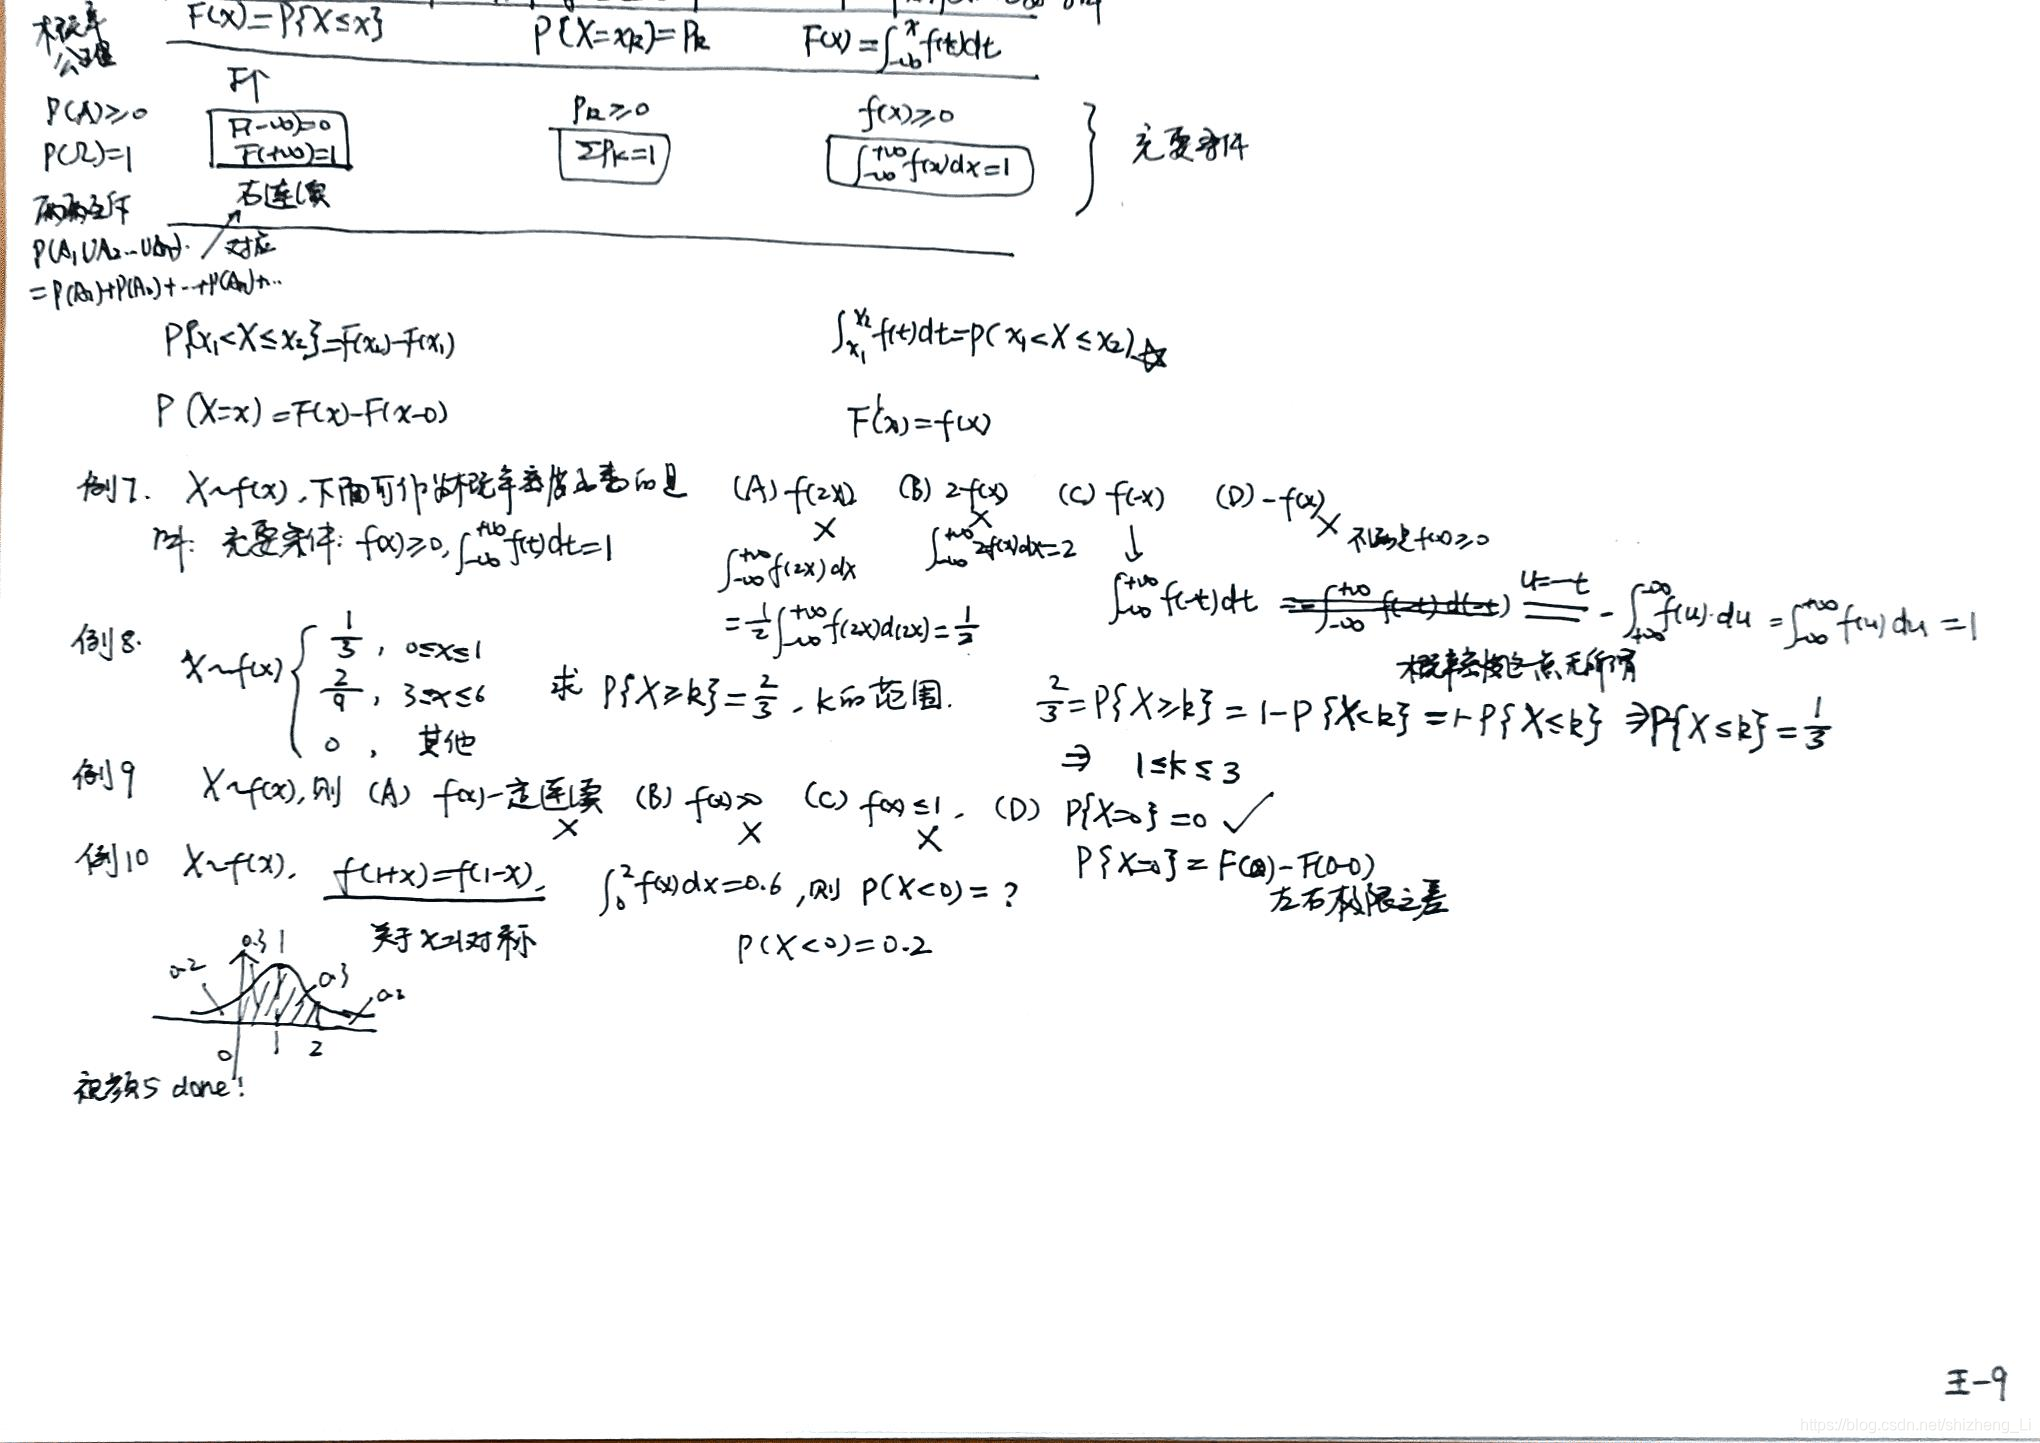 概率 F(x)=P{X≤x} P{X=xk}=Pk F(x)=∫_{-∞}^{x}f(t)dt
公理
F↑
P(A)≥0 F(-∞)=0 Pk≥0 f(x)≥0
P(Ω)=1 F(+∞)=1 ΣPk=1 ∫_{-∞}^{+∞}f(x)dx=1 } 充要条件
右连续
两两互斥
P(A₁∪A₂…∪An)… 对应
=P(A₁)+P(A₂)+…+P(An)+…
P{x₁<X≤x₂}=F(x₂)-F(x₁) ∫_{x₁}^{x₂}f(t)dt=P(x₁<X≤x₂) ☆
P(X=x)=F(x)-F(x-0) F'(x)=f(x)
例7. X~f(x),下面可作为概率密度函数的是 (A) f(2x) (B) 2f(x) (C) f(-x) (D) -f(x)
× × ↓ × 不满足f(x)≥0
解: 充要条件: f(x)≥0, ∫_{-∞}^{+∞}f(t)dt=1 ∫_{-∞}^{+∞}f(2x)dx ∫_{-∞}^{+∞}2f(x)dx=2
=1/2∫_{-∞}^{+∞}f(2x)d(2x)=1/2 ∫_{-∞}^{+∞}f(-t)dt u=-t -∫_{+∞}^{-∞}f(u)·du=∫_{-∞}^{+∞}f(u)du=1
例8. X~f(x){ 1/3, 0≤x≤1
2/9, 3≤x≤6 求 P{X≥k}=2/3, k的范围.
0, 其他
概率密度一点无所谓
2/3=P{X≥k}=1-P{X<k}=1-P{X≤k} ⇒P{X≤k}=1/3
⇒ 1≤k≤3
例9 X~f(x),则 (A) f(x)一定连续 (B) f(x)>0 (C) f(x)≤1. (D) P{X=0}=0 ✓
× × ×
P{X=0}=F(0)-F(0-0)
左右极限之差
例10 X~f(x), f(1+x)=f(1-x), ∫_{0}^{2}f(x)dx=0.6,则 P(X<0)=?
关于x=1对称 P(X<0)=0.2
0.2 0.3 1 0.3 0.2
0 1 2
视频5 done!
王-9
https://blog.csdn.net/shizheng_Li